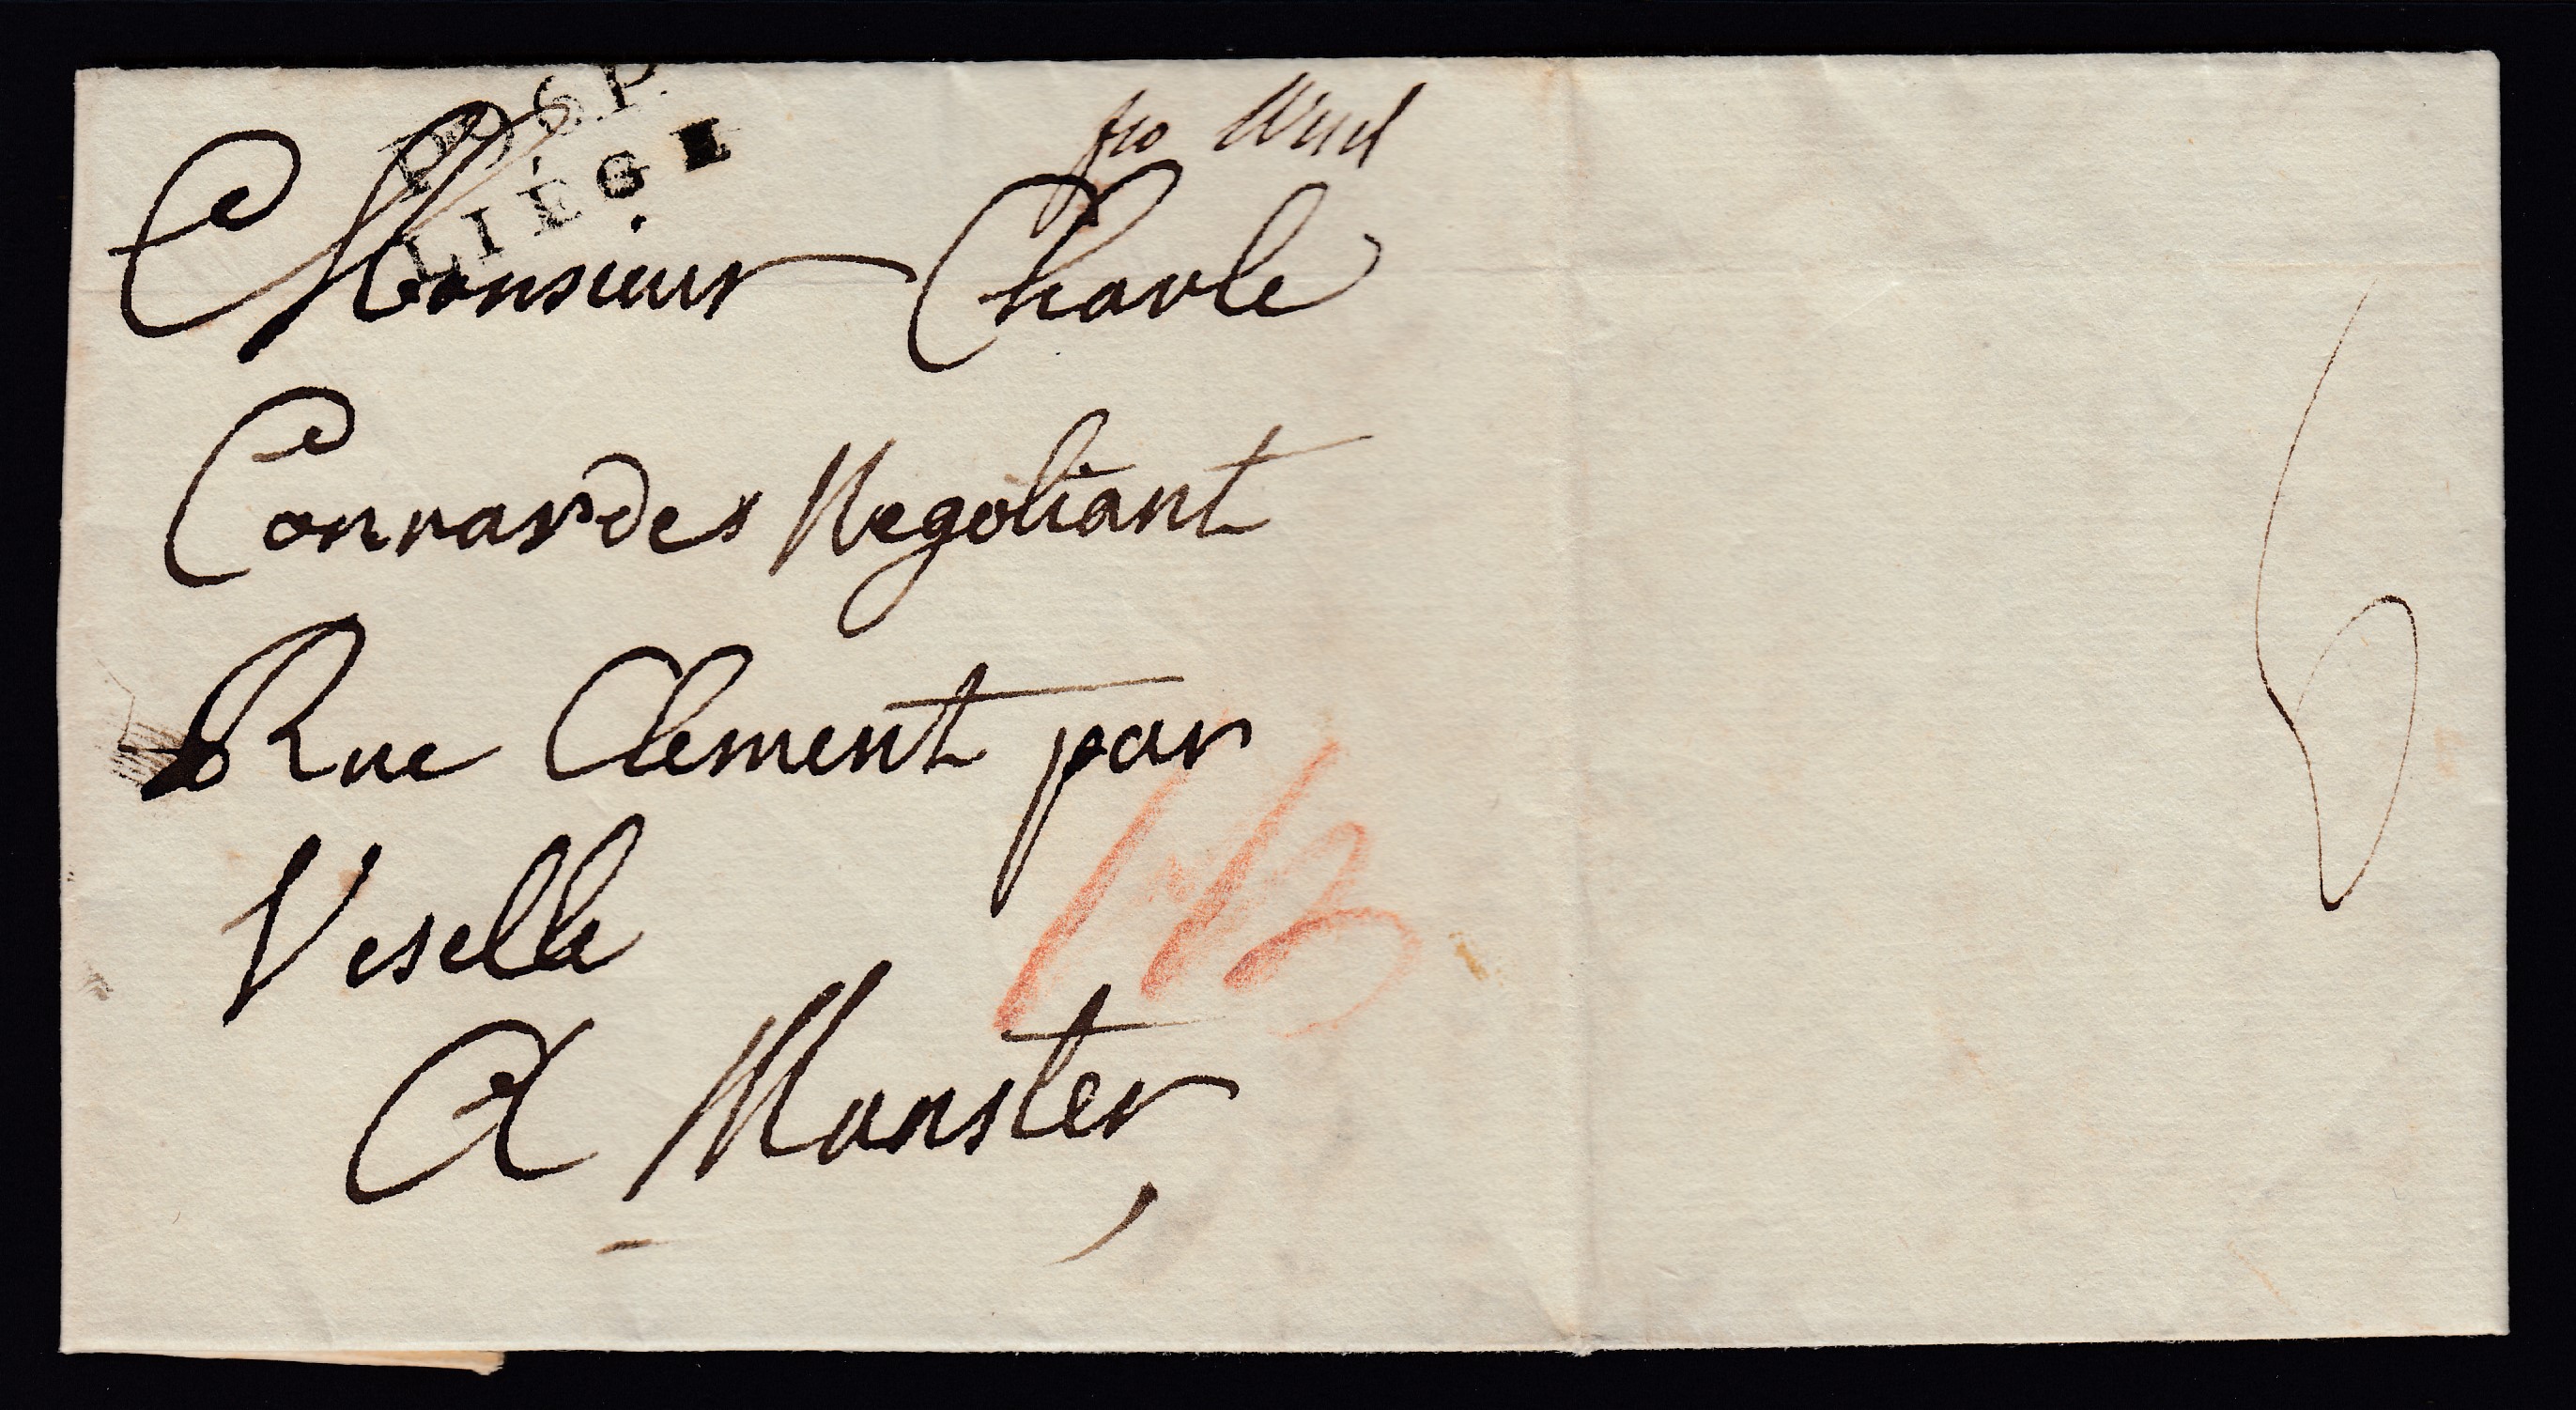 P.96.P.
LIÉGE
fro Wesel
Monsieur Charle
Conrardes Negotiant
Rue Clement par
Veselle
A Monster